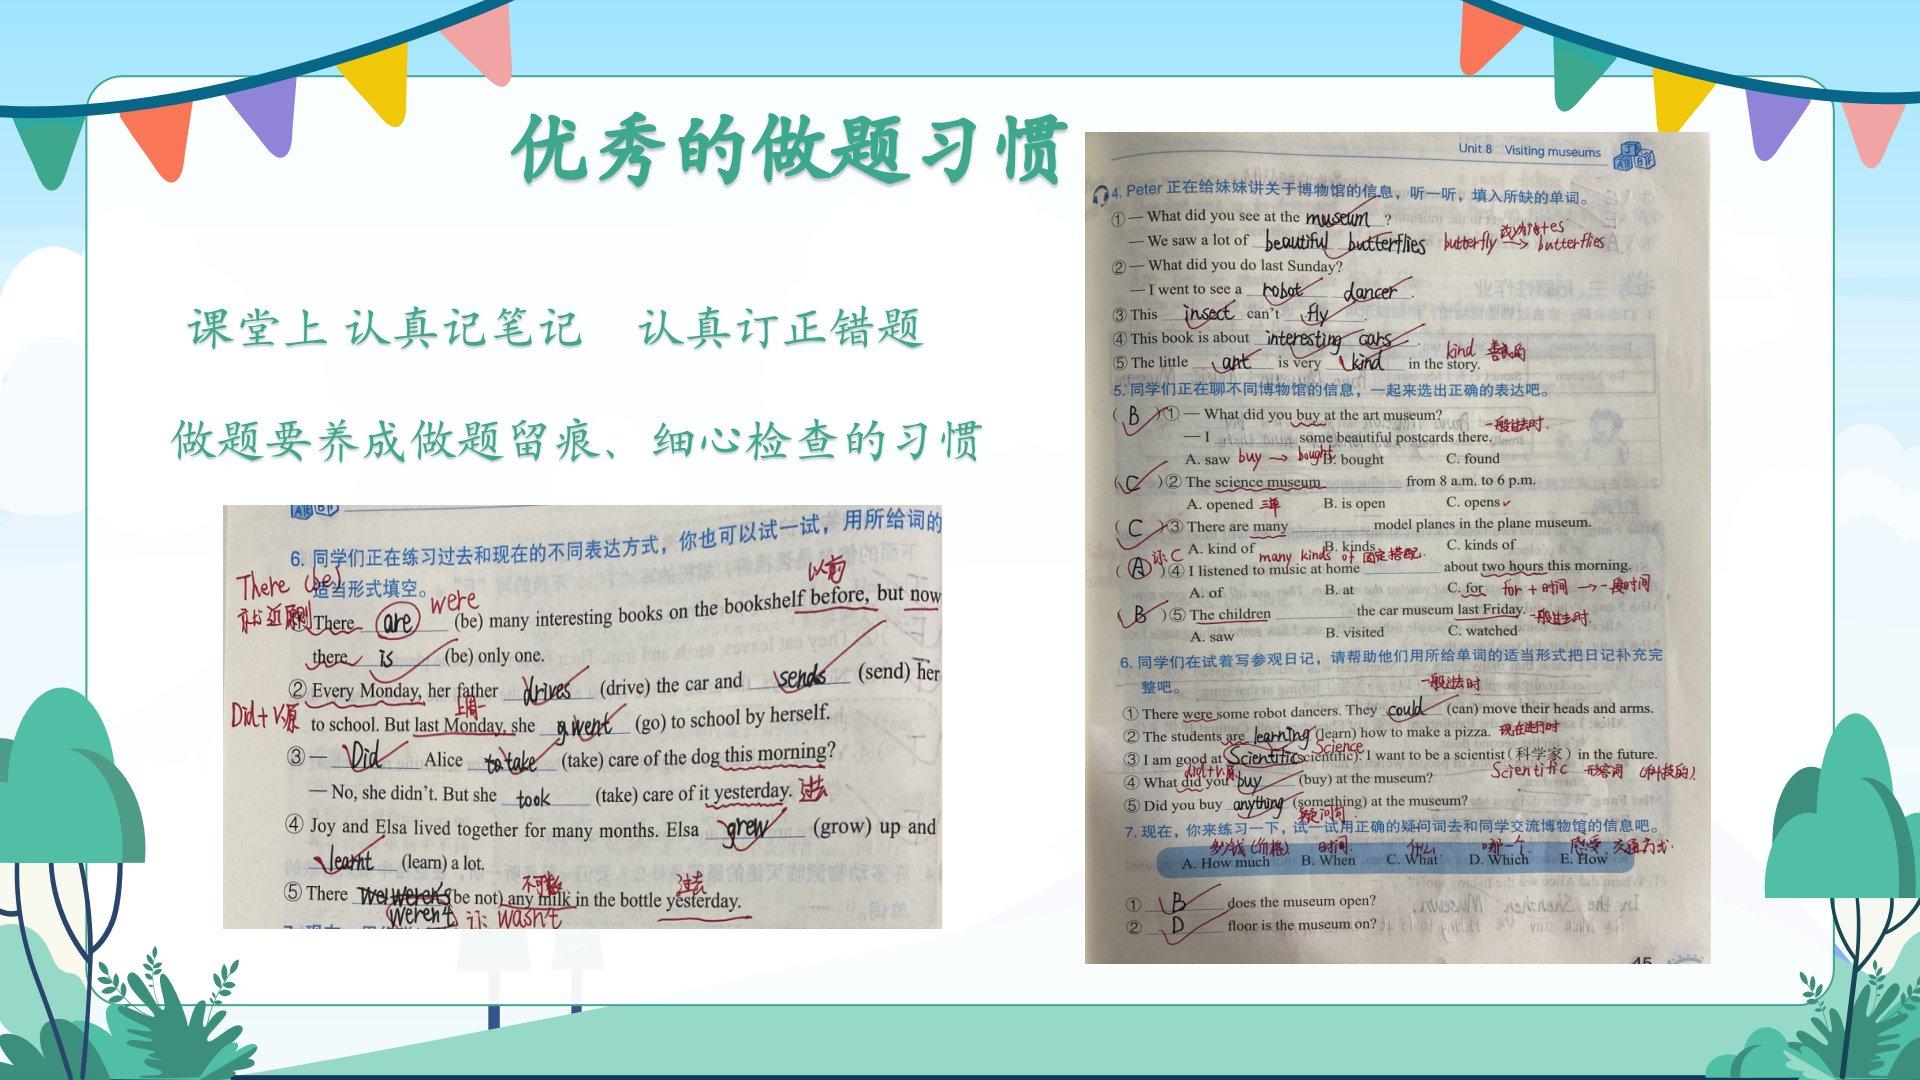 优秀的做题习惯
课堂上 认真记笔记 认真订正错题
做题要养成做题留痕、细心检查的习惯
6. 同学们正在练习过去和现在的不同表达方式，你也可以试一试，用所给词的
适当形式填空。
There (be)
就近原则
以前
There are were (be) many interesting books on the bookshelf before, but now
there is (be) only one.
② Every Monday, her father drives (drive) the car and sends (send) her
Did+V原 上周一
to school. But last Monday, she went (go) to school by herself.
③ — Did Alice take (take) care of the dog this morning?
— No, she didn't. But she took (take) care of it yesterday. 过去
④ Joy and Elsa lived together for many months. Elsa grew (grow) up and
learnt (learn) a lot.
不可数 过去
⑤ There (be not) any milk in the bottle yesterday.
weren't 订: wasn't
Unit 8 Visiting museums
4. Peter 正在给妹妹讲关于博物馆的信息，听一听，填入所缺的单词。
① — What did you see at the museum ?
— We saw a lot of beautiful butterflies butterfly → butterflies
② — What did you do last Sunday?
— I went to see a robot dancer .
③ This insect can't fly .
④ This book is about interesting cars .
⑤ The little ant is very kind in the story. kind 善良的
5. 同学们正在聊不同博物馆的信息，一起来选出正确的表达吧。
( B ) ① — What did you buy at the art museum? 一般过去时.
— I some beautiful postcards there.
A. saw buy → bought B. bought C. found
( C ) ② The science museum from 8 a.m. to 6 p.m.
A. opened 三单 B. is open C. opens
( C ) ③ There are many model planes in the plane museum.
A. kind of B. kinds C. kinds of
订: C many kinds of 固定搭配.
( A ) ④ I listened to music at home about two hours this morning.
A. of B. at C. for for + 时间 → 一段时间
( B ) ⑤ The children the car museum last Friday. 一般过去时.
A. saw B. visited C. watched
6. 同学们在试着写参观日记，请帮助他们用所给单词的适当形式把日记补充完
整吧。
一般过去时
① There were some robot dancers. They could (can) move their heads and arms.
② The students are learning (learn) how to make a pizza. 现在进行时
③ I am good at Scientific (scientific). I want to be a scientist (科学家) in the future.
Science
did+v原 Scientific 形容词 (科技的)
④ What did you buy (buy) at the museum?
⑤ Did you buy anything (something) at the museum?
疑问句
7. 现在，你来练习一下，试一试用正确的疑问词去和同学交流博物馆的信息吧。
多少钱(价格) 时间. 什么 哪一个. 感受、交通方式.
A. How much B. When C. What D. Which E. How
① B does the museum open?
② D floor is the museum on?